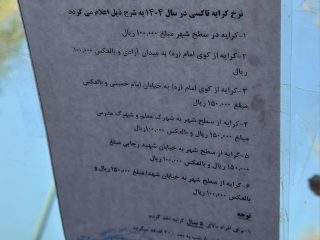 نرخ کرایه تاکسی در سال ۱۴۰۴ به شرح ذیل اعلام می گردد
۱-کرایه در سطح شهر مبلغ ۱۰۰,۰۰۰ ریال
۲-کرایه از کوی امام (ره) به میدان آزادی و بالعکس ۱۰۰,۰۰۰
ریال
۳-کرایه از کوی امام (ره) به خیابان امام خمینی و بالعکس
مبلغ ۱۵۰,۰۰۰ ریال
۴-کرایه از سطح شهر به شهرک معلم و شهرک مدرس
مبلغ ۱۵۰,۰۰۰ ریال و بالعکس ۱۰۰,۰۰۰ریال
۵-کرایه از سطح شهر به خیابان شهید رجایی مبلغ
۱۵۰,۰۰۰ ریال و بالعکس ۱۰۰,۰۰۰ ریال
۶-کرایه از سطح شهر به خیابان شهدا مبلغ ۱۵۰,۰۰۰ ریال و
بالعکس ۱۰۰,۰۰۰ ریال
توجه
۱-برای افراد بالای ۵ سال کرایه اخذ گردد
شب به بعد ۲۰۰ اضافه میگردد